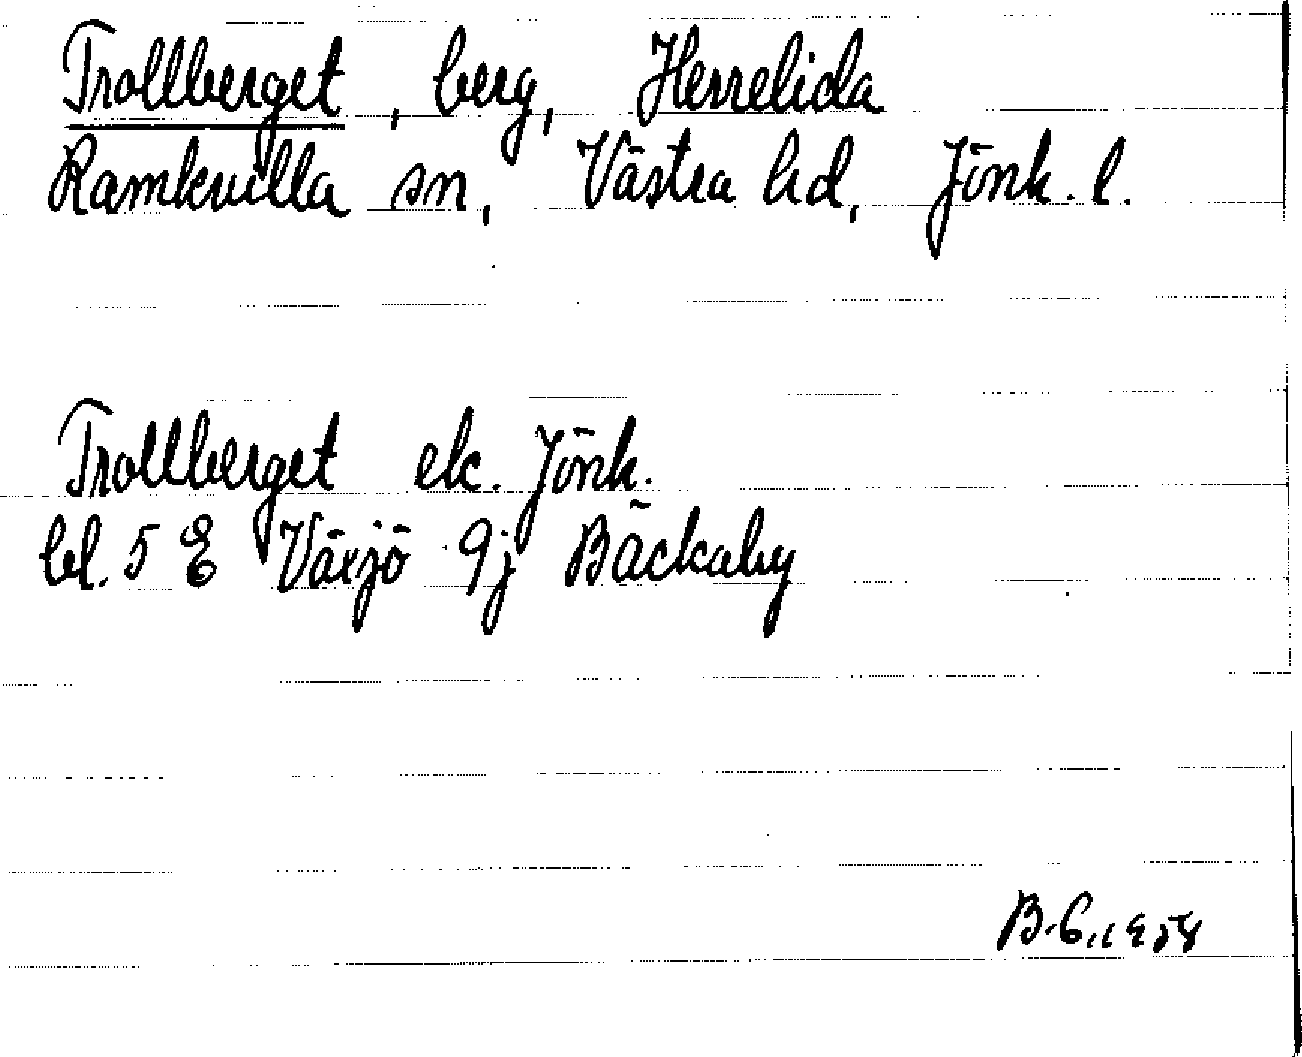 Trollberget, berg, Herrelida
Ramkvilla sn, Västra hd, Jönk. l.
Trollberget ek. Jönk.
bl. 5 E Växjö 9j Bäckaby